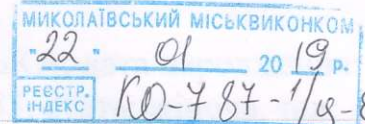 МИКОЛАЇВСЬКИЙ МІСЬКВИКОНКОМ
"22" 01 2019 р.
РЕЄСТР. ІНДЕКС КО-787-1/